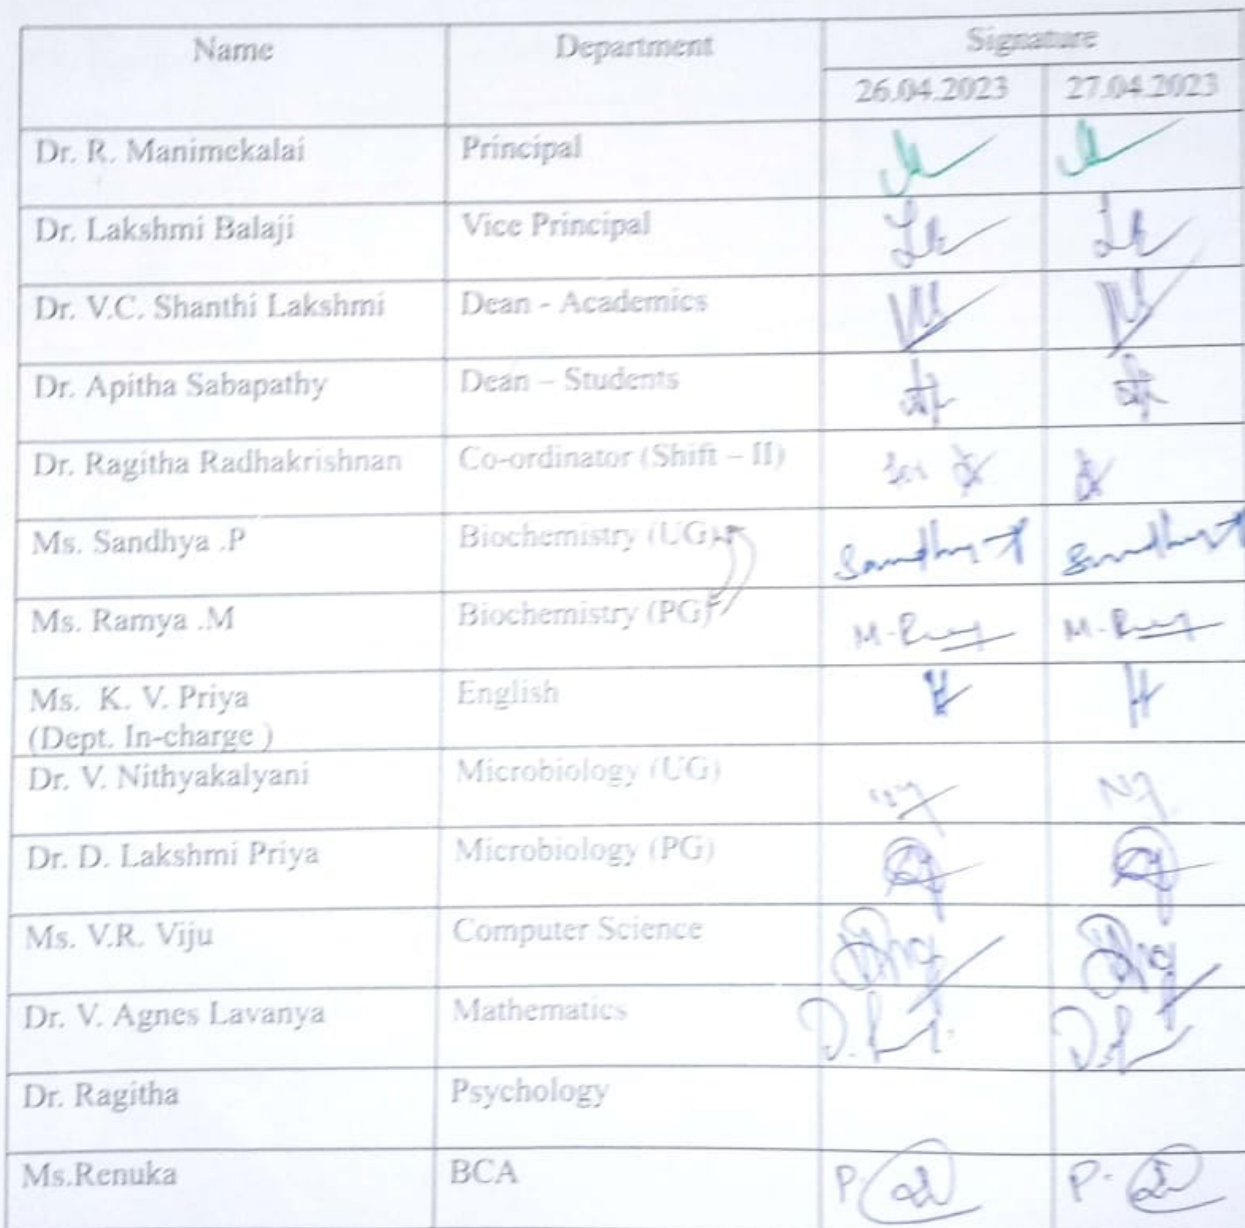 Name Department Signature
26.04.2023 27.04.2023
Dr. R. Manimekalai Principal
Dr. Lakshmi Balaji Vice Principal
Dr. V.C. Shanthi Lakshmi Dean - Academics
Dr. Apitha Sabapathy Dean – Students
Dr. Ragitha Radhakrishnan Co-ordinator (Shift – II)
Ms. Sandhya .P Biochemistry (UG)
Ms. Ramya .M Biochemistry (PG)
Ms. K. V. Priya English
(Dept. In-charge )
Dr. V. Nithyakalyani Microbiology (UG)
Dr. D. Lakshmi Priya Microbiology (PG)
Ms. V.R. Viju Computer Science
Dr. V. Agnes Lavanya Mathematics
Dr. Ragitha Psychology
Ms.Renuka BCA